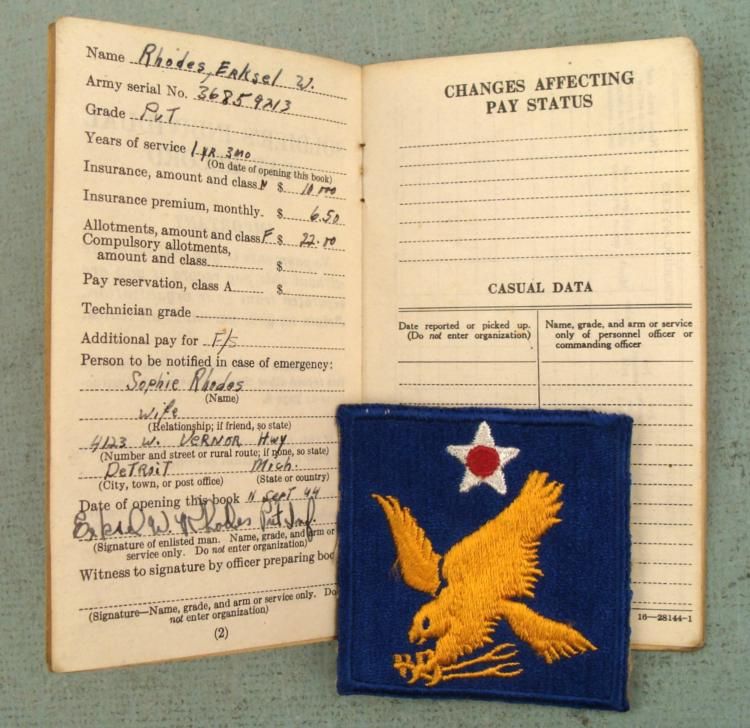 Name Rhodes, Erksel W.
Army serial No. 36859213
Grade Pvt
Years of service 1 yr 3mo
(On date of opening this book)
Insurance, amount and class N $ 10,000
Insurance premium, monthly. $ 6.50
Allotments, amount and class F $ 22.00
Compulsory allotments,
amount and class $
Pay reservation, class A $
Technician grade
Additional pay for F/S
Person to be notified in case of emergency:
Sophie Rhodes
(Name)
wife
(Relationship; if friend, so state)
4123 W. VERNOR Hwy
(Number and street or rural route; if none, so state)
DeTROIT Mich.
(City, town, or post office) (State or country)
Date of opening this book 11 Sept 44
Erksel W. Rhodes Pvt Inf
(Signature of enlisted man. Name, grade, and arm or
service only. Do not enter organization)
Witness to signature by officer preparing boo
(Signature—Name, grade, and arm or service only. Do
not enter organization)
(2)
CHANGES AFFECTING
PAY STATUS
CASUAL DATA
Date reported or picked up.
(Do not enter organization)
Name, grade, and arm or service
only of personnel officer or
commanding officer
16—28144-1